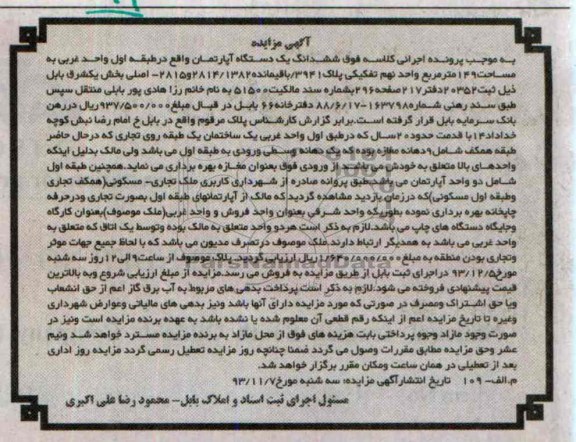 آگهی مزایده
به موجب پرونده اجرائی کلاسه فوق ششدانگ یک دستگاه آپارتمان واقع درطبقه اول واحد غربی به
مساحت۱۴۹مترمربع واحد نهم تفکیکی پلاک۳۹۴۱/باقیمانده۲۸۱۴/۱۳۸۲و۲۸۱۵- اصلی بخش یکشرق بابل
ذیل ثبت۲۰۳۵۲دفتر۲۱۷صفحه۲۹۶بشماره سند مالکیت۵۱۵۰۰ به نام خانم رزا هادی پور بابلی منتقل سپس
طبق سند رهنی شماره۱۶۳۷۹۸-۸۸/۶/۱۷ دفترخانه۶۶ بابل در قبال مبلغ۹۳۷/۵۰۰/۰۰۰ریال دررهن
بانک سرمایه بابل قرار گرفته است.برابر گزارش کارشناس پلاک مرقوم واقع در بابل خ امام رضا نبش کوچه
خداداد۱۴با قدمت حدود۲۰سال که درطبق اول واحد غربی یک ساختمان یک طبقه روی تجاری که درحال حاضر
طبقه همکف شامل۹دهانه مغازه بوده که یک دهانه وسطی ورودی به طبقه اول می باشد ولی مالک بدلیل اینکه
واحدهای بالا متعلق به خودش می باشد از ورودی فوق بعنوان مغازه بهره برداری می نماید.همچنین طبقه اول
شامل دو واحد آپارتمان می باشد.طبق پروانه صادره از شهرداری کاربری ملک تجاری- مسکونی(همکف تجاری
وطبقه اول مسکونی)که درزمان بازدید مشاهده گردید که مالک از آپارتمانهای طبقه اول بصورت تجاری ودرحرفه
چاپخانه بهره برداری نموده بطوریکه واحد شرقی بعنوان واحد فروش و واحد غربی(ملک موصوف)بعنوان کارگاه
وجایگاه دستگاه های چاپ می باشد.لازم به ذکر است هردو واحد متعلق به مالک بوده وتوسط یک اتاق که متعلق به
واحد غربی می باشد به همدیگر ارتباط دارند.ملک موصوف درتصرف مدیون می باشد که با لحاظ جمیع جهات موثر
وتجاری بودن منطقه به مبلغ ریال ارزیابی گردید.پلاک موصوف از ساعت۹الی۱۲روز سه شنبه
مورخ۹۳/۱۲/۵ دراجرای ثبت بابل از طریق مزایده به فروش می رسد.مزایده از مبلغ ارزیابی شروع وبه بالاترین
قیمت پیشنهادی فروخته می شود.لازم به ذکر است پرداخت بدهی های مربوط به آب برق گاز اعم از حق انشعاب
ویا حق اشتراک ومصرف در صورتی که مورد مزایده دارای آنها باشد ونیز بدهی های مالیاتی وعوارض شهرداری
وغیره تا تاریخ مزایده اعم از اینکه رقم قطعی آن معلوم شده یا نشده باشد به عهده برنده مزایده است ونیز در
صورت وجود مازاد وجوه پرداختی بابت هزینه های فوق از محل مازاد به برنده مزایده مسترد خواهد شد ونیم
عشر وحق مزایده مطابق مقررات وصول می گردد ضمنا چنانچه روز مزایده تعطیل رسمی گردد مزایده روز اداری
بعد از تعطیلی در همان ساعت ومکان مقرر برگزار خواهد شد.
م.الف- ۱۰۹ تاریخ انتشارآگهی مزایده: سه شنبه مورخ۹۳/۱۱/۷
مسئول اجرای ثبت اسناد و املاک بابل- محمود رضا علی اکبری